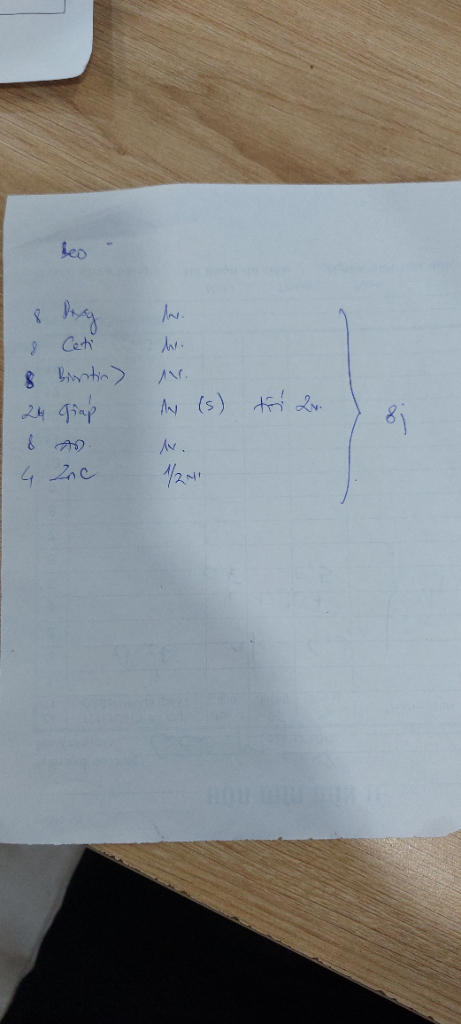 Beo -
8 Doxy 1v.
8 Ceti 1v.
8 Biotin 1v.
24 Giáp 1v (S) tối 2v.
8 AD. 1v.
4 ZnC 1/2v
8j